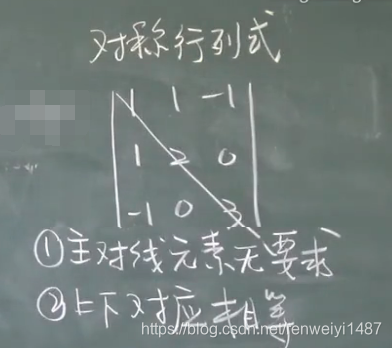 对称行列式
1 1 -1
1 2 0
-1 0 3
①主对线元素无要求
②上下对应相等
https://blog.csdn.net/renweiyi1487